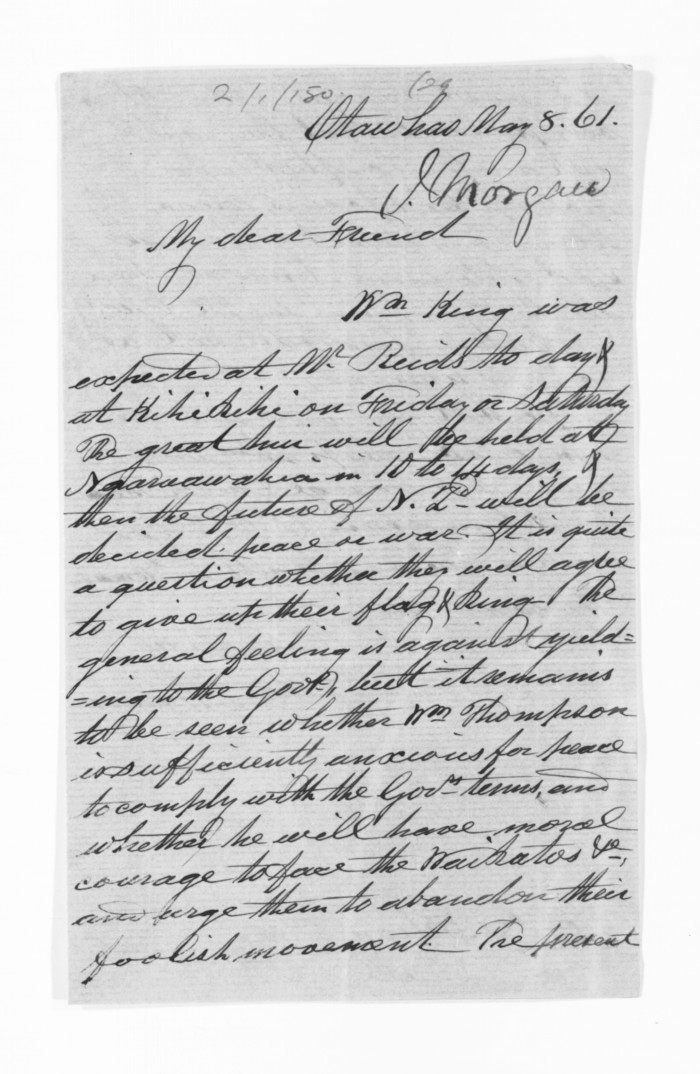 2/1/180. (29
Otawhao May 8. 61.
J. Morgan
My dear Friend
Wm King was
expected at Mr Reids to day &
at Kihikihi on Friday or Saturday
The great hui will be held at
Ngaruawahia in 10 to 14 days, &
then the future of N. Zd will be
decided. peace or war. It is quite
a question whether they will agree
to give up their flag & King The
general feeling is against yield=
=ing to the Govt, but it remains
to be seen whether Wm Thompson
is sufficiently anxious for peace
to comply with the Govrs terms, and
whether he will have moral
courage to face the Waikatos &c,
and urge them to abandon their
foolish movement. The present